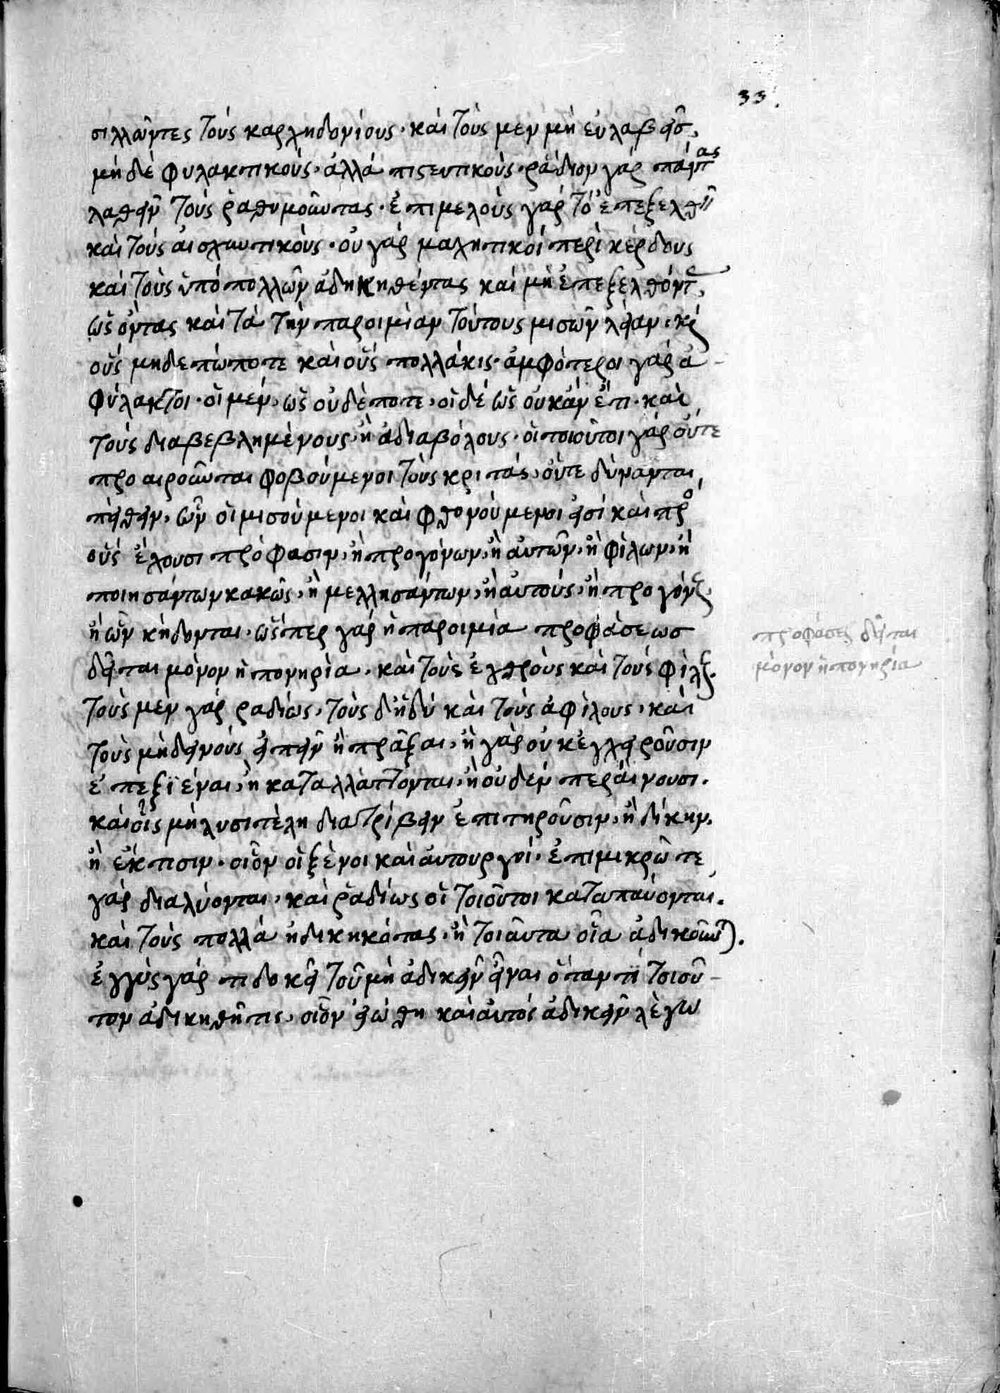 33
σιλλῶντες τοὺς καρχηδονίους· καὶ τοὺς μὲν μὴ εὐλαβεῖς,
μὴ δὲ φυλακτικούς· ἀλλὰ πιστευτικούς· ῥάδιον γὰρ πάντας
λαθεῖν τοὺς ῥαθυμοῦντας· ἐπιμελοὺς γὰρ τὸ ἐπεξελθεῖν
καὶ τοὺς αἰσχυντικούς· οὐ γὰρ μαχητικοὶ περὶ κέρδους
καὶ τοὺς ὑπὸ πολλῶν ἀδικηθέντας καὶ μὴ ἐπεξελθόντας,
ὡς ὄντας κατὰ τὴν παροιμίαν τούτους μισῶν λείαν· καὶ
οὓς μηδεπώποτε καὶ οὓς πολλάκις· ἀμφότεροι γὰρ ἀ-
φύλακτοι· οἱ μέν, ὡς οὐδέποτε· οἱ δὲ ὡς οὐκ ἂν ἔτι· καὶ
τοὺς διαβεβλημένους, ἢ ἀδιαβόλους· οἱ τοιοῦτοι γὰρ οὔτε
προαιροῦνται φοβούμενοι τοὺς κριτάς, οὔτε δύνανται
πείθειν, ὧν οἱ μισούμενοι καὶ φθονούμενοι εἰσὶ καὶ πρὸς
οὓς ἔχουσι πρόφασιν, ἢ προγόνων, ἢ αὐτῶν, ἢ φίλων, ἢ
ποιησάντων κακῶς, ἢ μελλησάντων, ἢ αὐτούς, ἢ προγόνους,
ἢ ὧν κήδονται· ὥσπερ γὰρ ἡ παροιμία προφάσεως
δεῖται μόνον ἡ πονηρία· καὶ τοὺς ἐχθροὺς καὶ τοὺς φίλους,
τοὺς μὲν γὰρ ῥαδίως, τοὺς δ' ἡδύ καὶ τοὺς ἀφίλους, καὶ
τοὺς μὴ δεινοὺς εἰπεῖν ἢ πρᾶξαι, ἢ γὰρ οὐκ ἐγχειροῦσιν
ἐπεξϊέναι, ἢ καταλλάττονται, ἢ οὐδὲν περαίνουσι.
καὶ οἷς μὴ λυσιτελῆ διατρίβειν ἐπιτηροῦσιν, ἢ δίκην,
ἢ ἔκτισιν· οἷον οἱ ξένοι καὶ αὐτουργοί· ἐπιμικρῶ τε
γὰρ διαλύονται, καὶ ῥαδίως οἱ τοιοῦτοι καταπαύονται.
καὶ τοὺς πολλὰ ἠδικηκότας, ἢ τοιαῦτα οἷα ἀδικοῦνται.
ἐγγὺς γάρ τι δοκεῖ τοῦ μὴ ἀδικεῖν εἶναι ὅταν τι τοιοῦ-
τον ἀδικηθῆ τις, οἷον εἰώθη καὶ αὐτὸς ἀδικεῖν λέγω
προφάσεως δεῖται
μόνον ἡ πονηρία